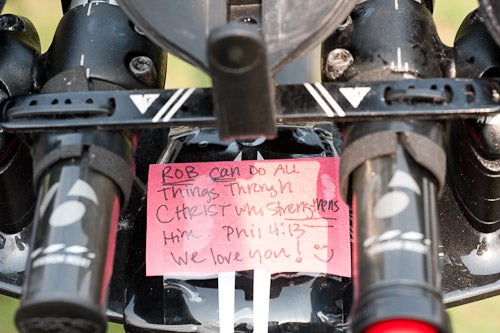 ROB can Do ALL
Things Through
CHRIST who Strengthens
Him. Phil 4:13
We love you!